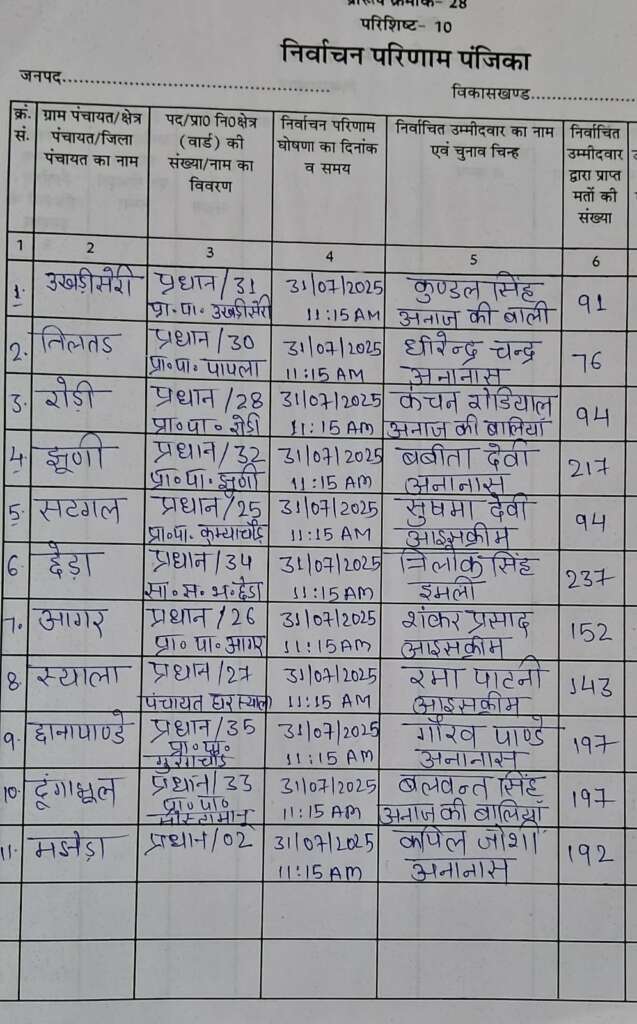 परिशिष्ट- 10
निर्वाचन परिणाम पंजिका
जनपद....................................................
विकासखण्ड....................
क्रं. सं.
ग्राम पंचायत/क्षेत्र पंचायत/जिला पंचायत का नाम
पद/प्रा0 नि0क्षेत्र (वार्ड) की संख्या/नाम का विवरण
निर्वाचन परिणाम घोषणा का दिनांक व समय
निर्वाचित उम्मीदवार का नाम एवं चुनाव चिन्ह
निर्वाचित उम्मीदवार द्वारा प्राप्त मतों की संख्या
1 2 3 4 5 6
1. उखड़ीसेरी प्रधान/31 31/07/2025 कुण्डल सिंह 91
प्रा.पा. उखड़ीसेरी 11:15 AM अनाज की बाली
2. तिलतड़ प्रधान/30 31/07/2025 धीरेन्द्र चन्द्र 76
प्रा०पा. पापला 11:15 AM अनानास
3. रोड़ी प्रधान/28 31/07/2025 कंचन रोडियाल 94
प्रा०पा० रोड़ी 11:15 AM अनाज की बालियाँ
4. झूणी प्रधान/32 31/07/2025 बबीता देवी 217
प्रा०पा. झूणी 11:15 AM अनानास
5. सटगल प्रधान/25 31/07/2025 सुषमा देवी 94
प्रा०पा. कुम्याचौड़ 11:15 AM आइसक्रीम
6. छेड़ा प्रधान/34 31/07/2025 त्रिलोक सिंह 237
सा.स.भ. छेड़ा 11:15 AM इमली
7. आगर प्रधान/26 31/07/2025 शंकर प्रसाद 152
प्रा०पा. आगर 11:15 AM आइसक्रीम
8. स्याला प्रधान/27 31/07/2025 रमा पाटनी 143
पंचायत घर स्याला 11:15 AM आइसक्रीम
9. छानापाण्डे प्रधान/35 31/07/2025 गौरव पाण्डे 197
प्रा०पा० 11:15 AM अनानास
10. ढूंगाभूल प्रधान/33 31/07/2025 बलवन्त सिंह 197
प्रा०पा० 11:15 AM अनाज की बालियाँ
11. मझेड़ा प्रधान/02 31/07/2025 कपिल जोशी 192
11:15 AM अनानास